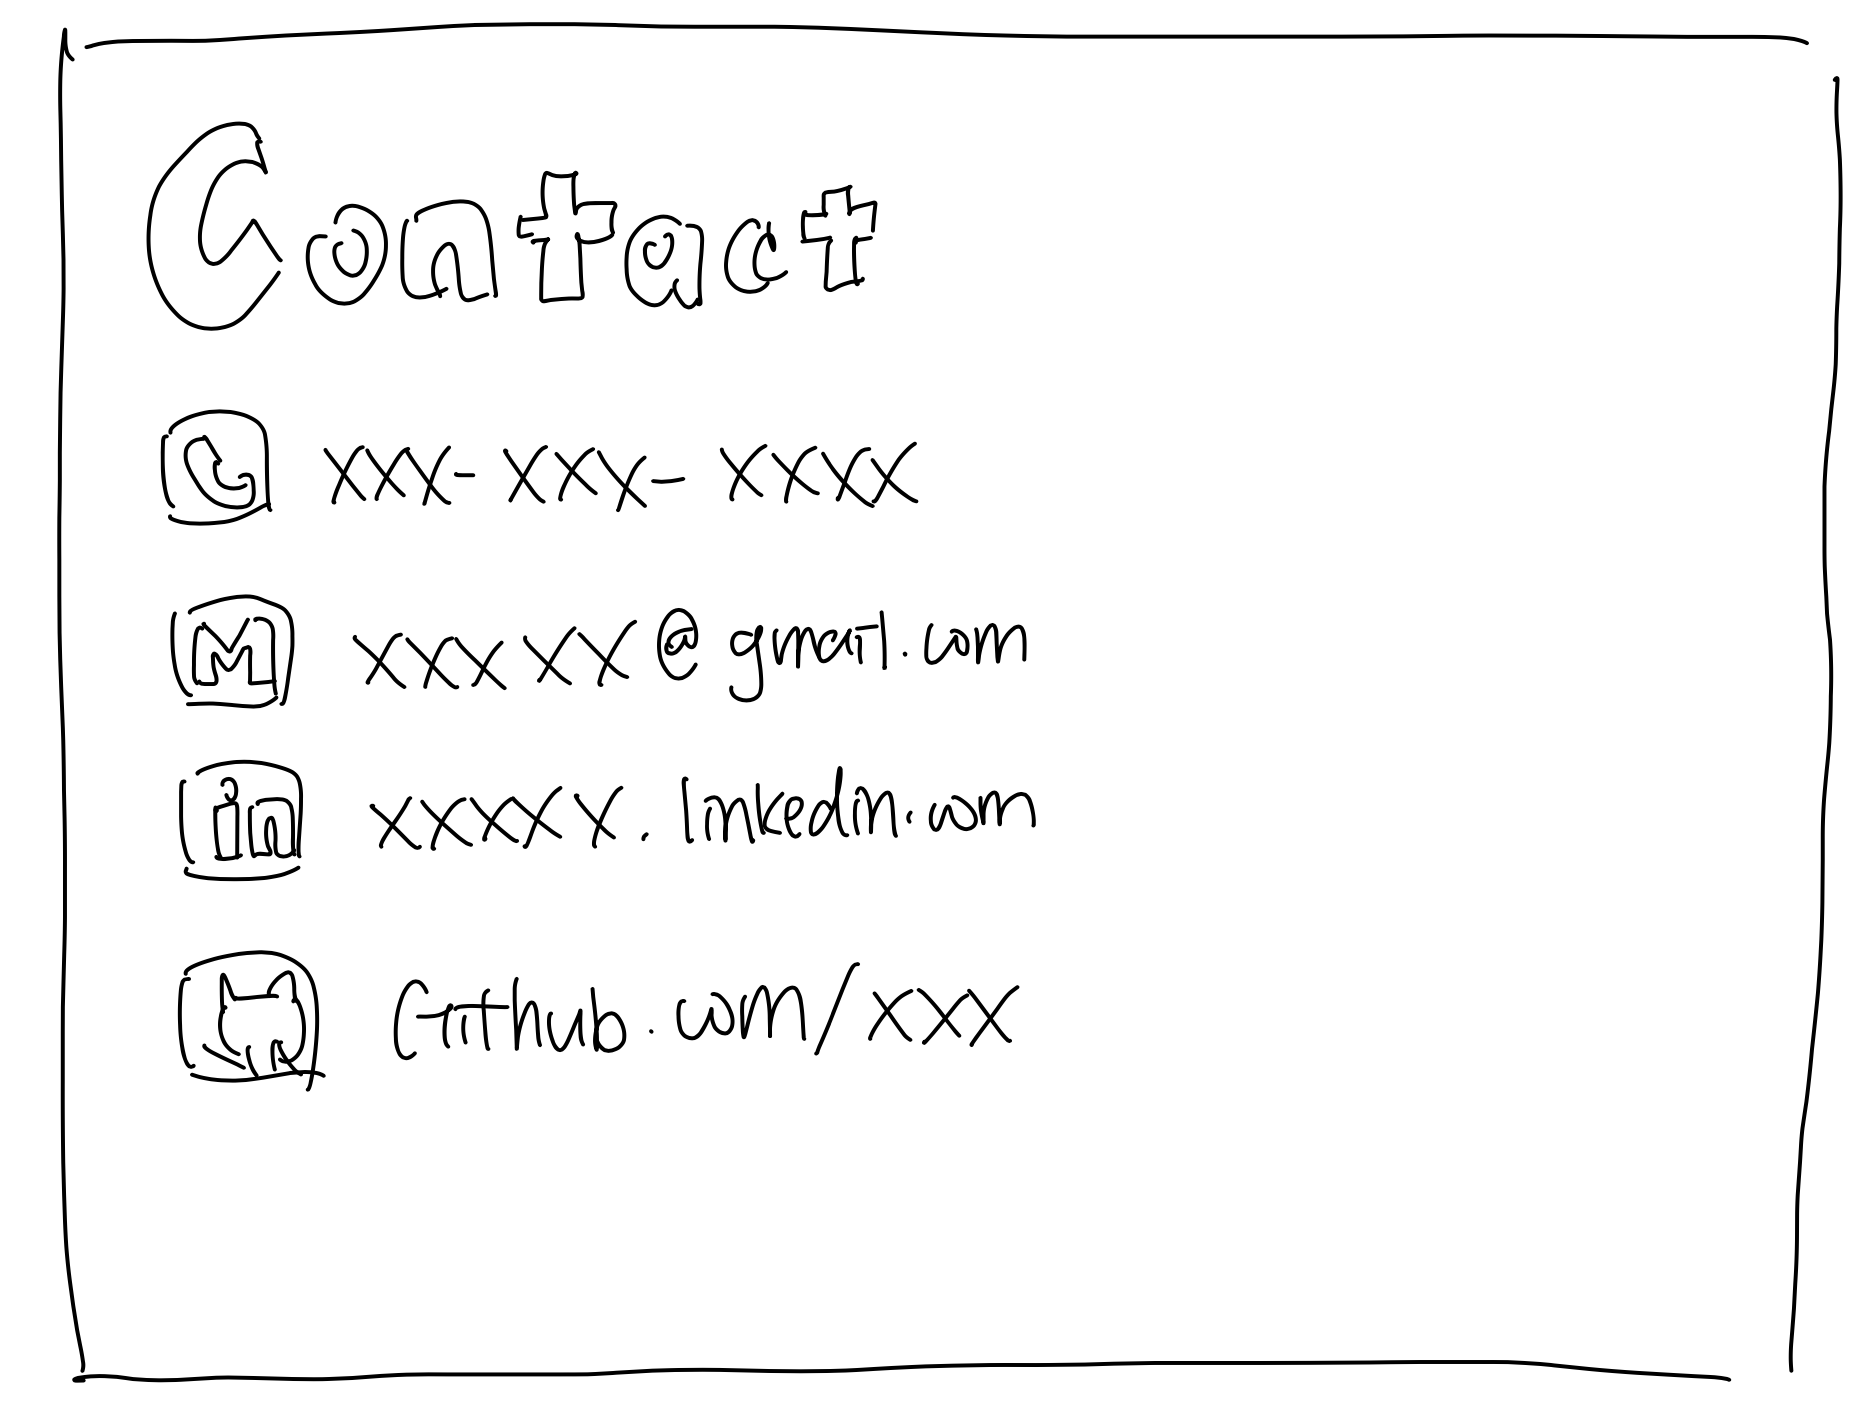 Contact
xxx-xxx-xxxx
M xxxxx@gmail.com
in xxxxx.linkedin.com
Github.com/xxx